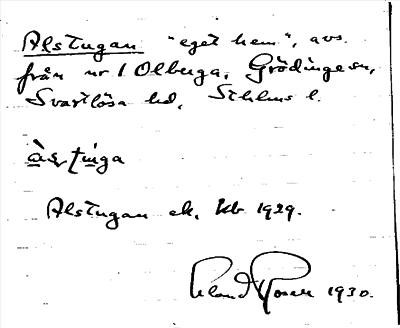 Alstugan "eget hem", avs.
från nr 1 Olberga, Grödinge sn,
Svartlösa hd, Sthlms l.
àstúga
Alstugan ek. Kb 1929.
Roser 1930.